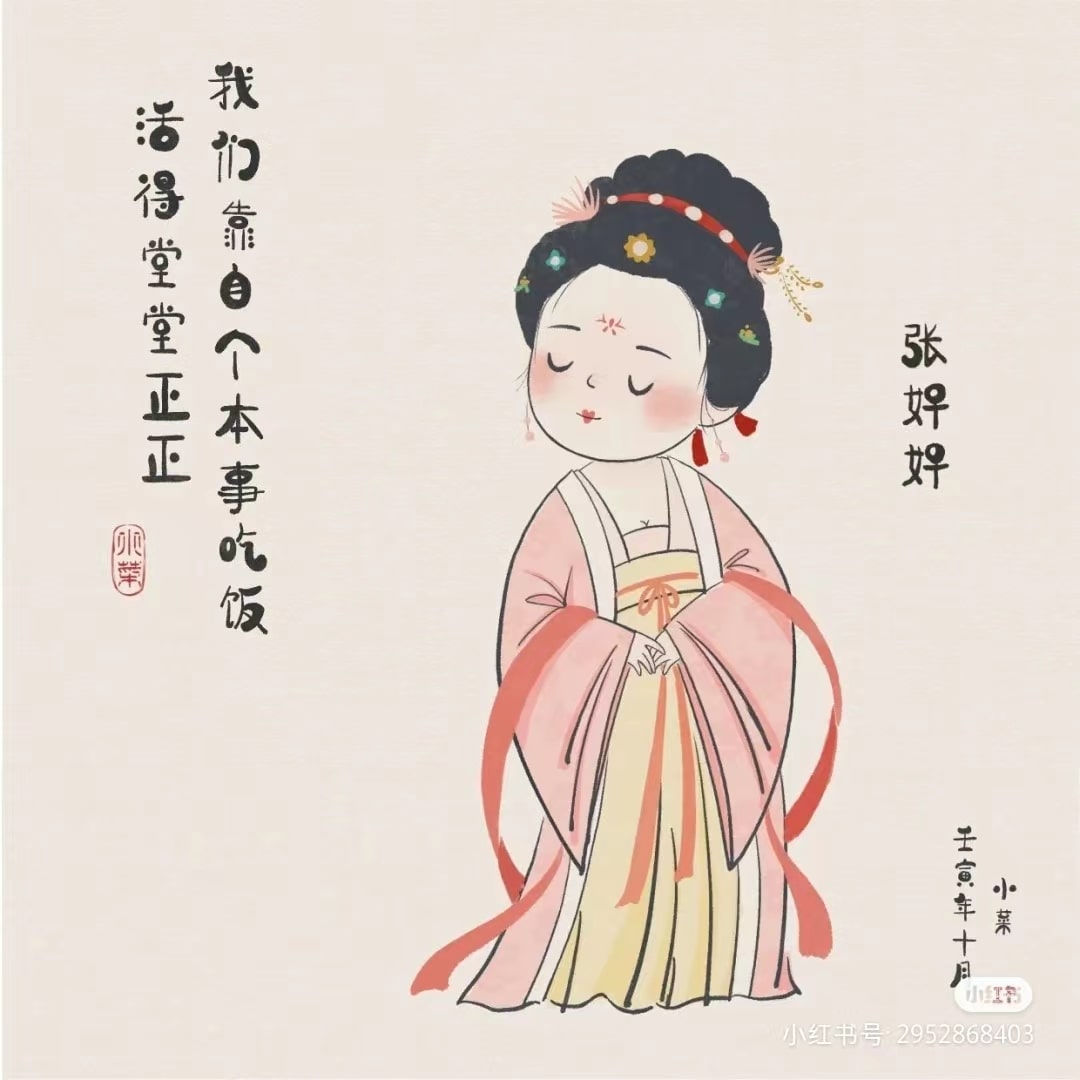 我们靠自个本事吃饭
活得堂堂正正
小菜
张好好
壬寅年十月
小菜
小红书
小红书号: 2952868403